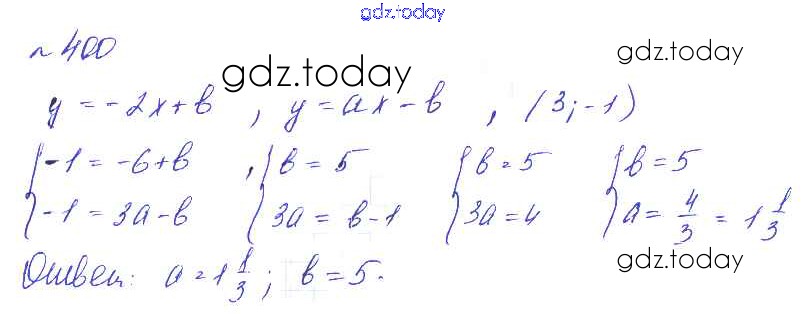 gdz.today
№ 400
gdz.today gdz.today
y = -2x + b , y = ax - b , (3; -1)
{ -1 = -6 + b , { b = 5 { b = 5 { b = 5
{ -1 = 3a - b { 3a = b - 1 { 3a = 4 { a = 4/3 = 1 1/3
Ответ: a = 1 1/3 ; b = 5.
gdz.today gdz.today